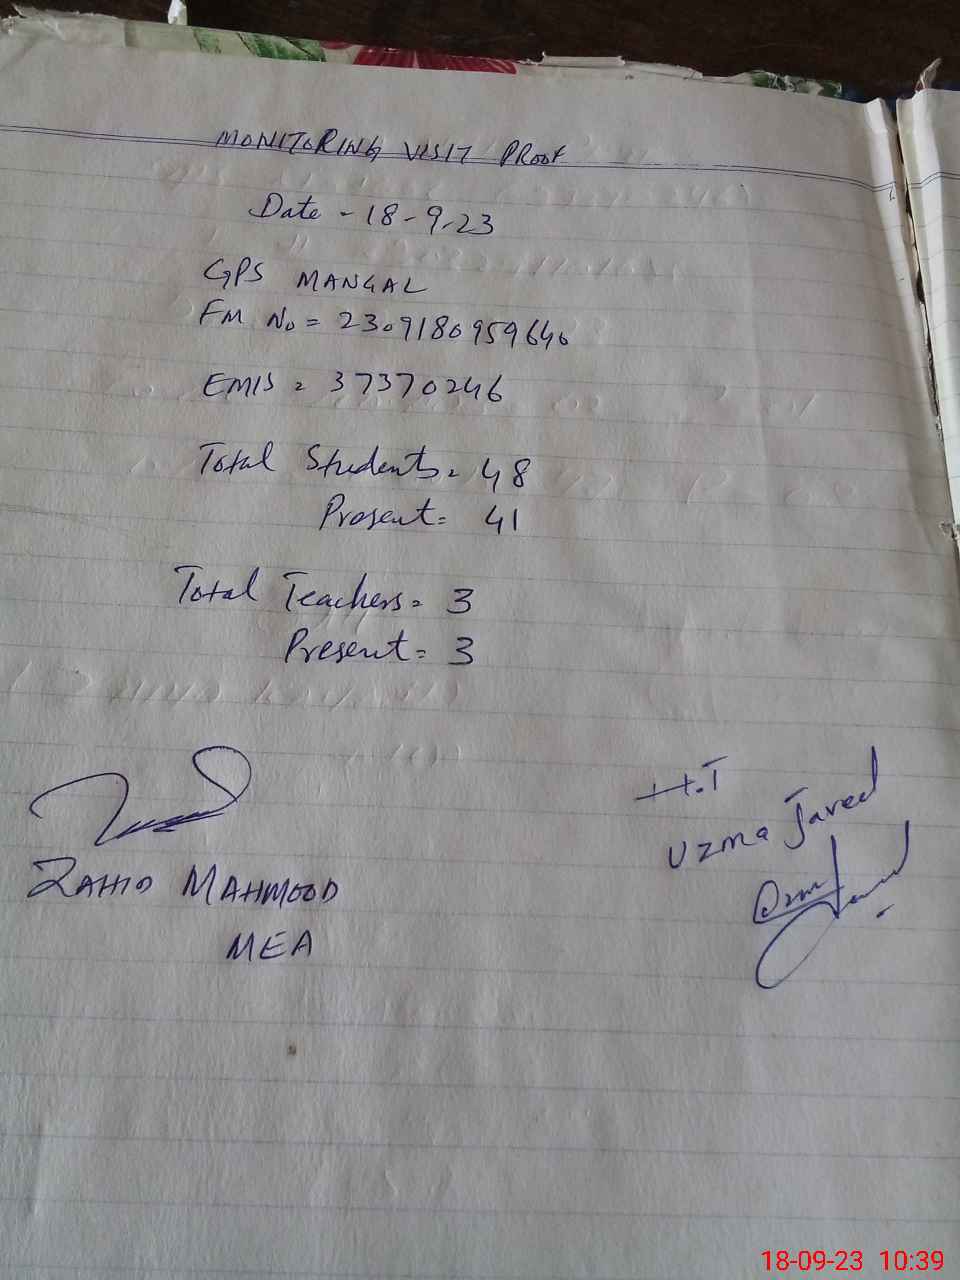 MONITORING VISIT PROOF
Date - 18-9-23
GPS MANGAL
FM No = 2309180959640
EMIS = 37370246
Total Students = 48
Present = 41
Total Teachers = 3
Present = 3
H.T
Uzma Javed
ZAHID MAHMOOD
MEA
18-09-23 10:39